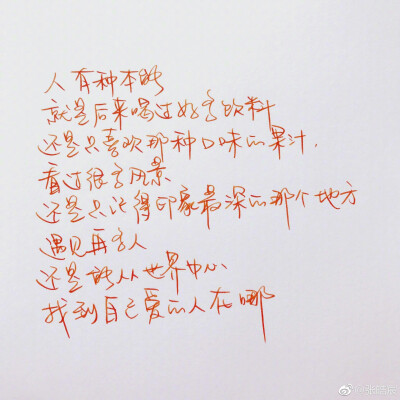 人有种本能
就是后来喝过好多饮料
还是只喜欢那种口味的果汁.
看过很多风景
还是只记得印象最深的那个地方
遇见再多人
还是能从世界中心
找到自己爱的人在哪